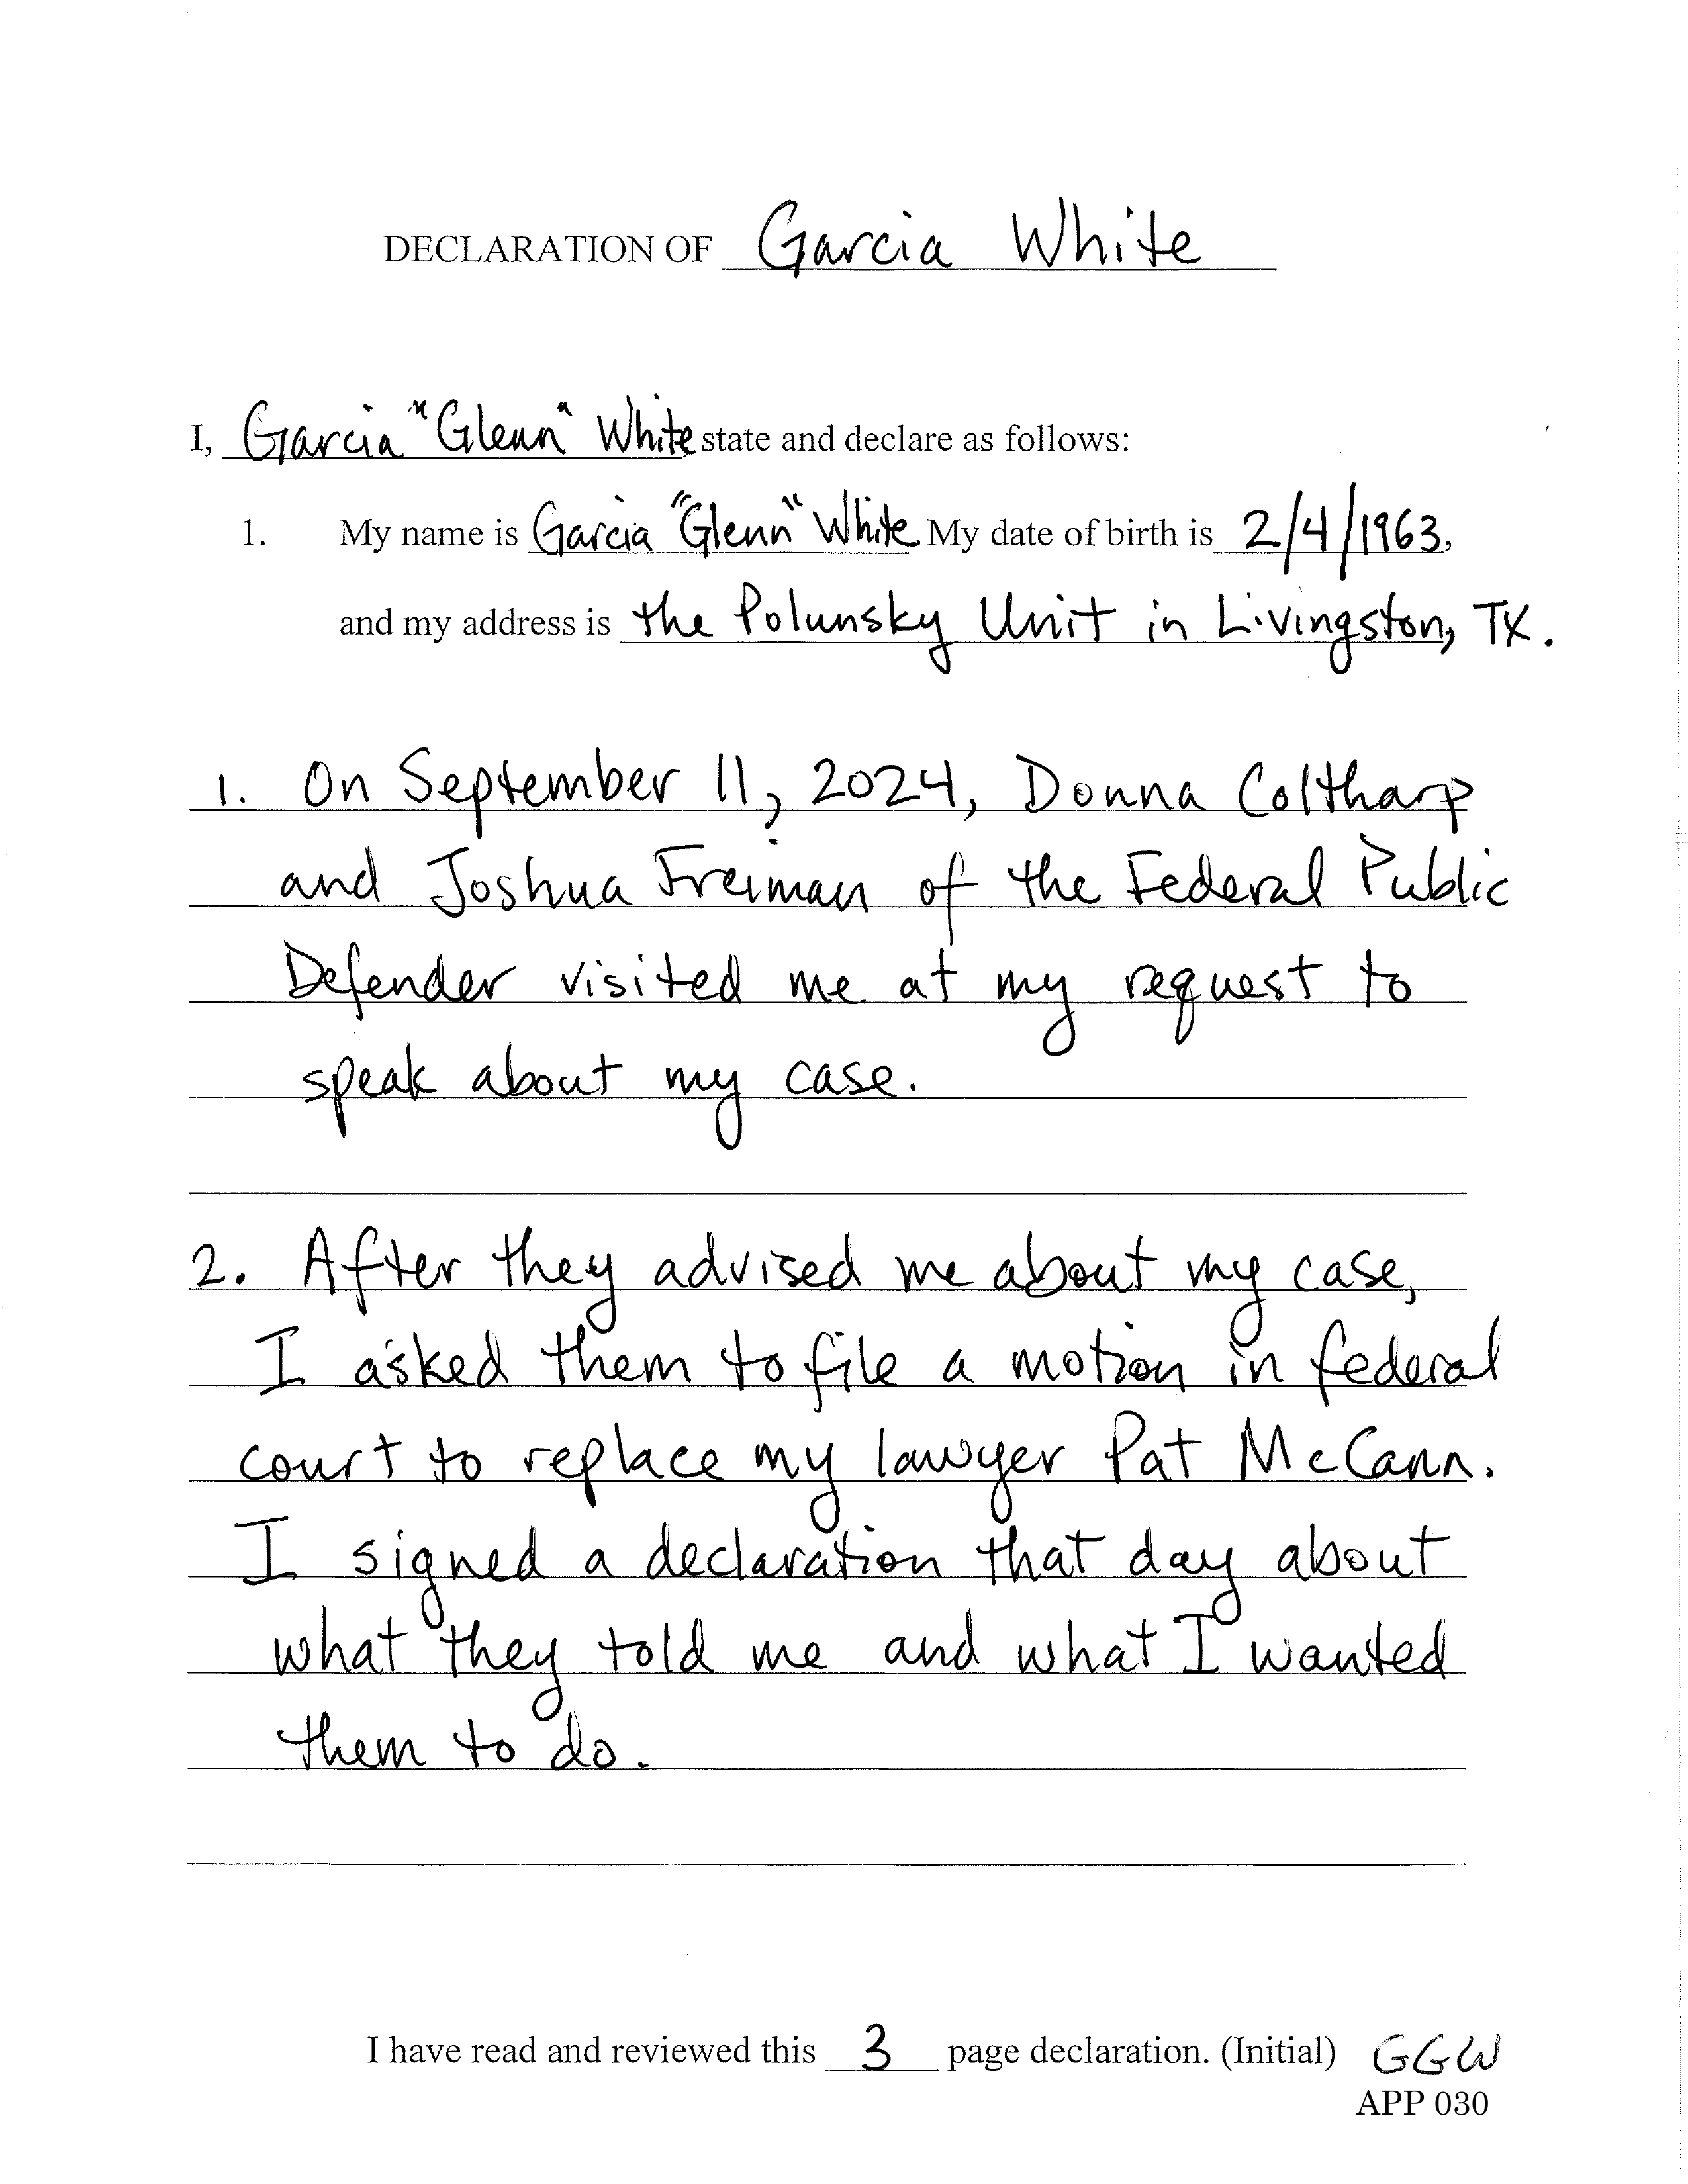 DECLARATION OF Garcia White
I, Garcia "Glenn" White state and declare as follows:
1. My name is Garcia "Glenn" White My date of birth is 2/4/1963,
and my address is the Polunsky Unit in Livingston, TX.
1. On September 11, 2024, Donna Coltharp
and Joshua Freiman of the Federal Public
Defender visited me at my request to
speak about my case.
2. After they advised me about my case,
I asked them to file a motion in federal
court to replace my lawyer Pat McCann.
I signed a declaration that day about
what they told me and what I wanted
them to do.
I have read and reviewed this 3 page declaration. (Initial) GGW
APP 030